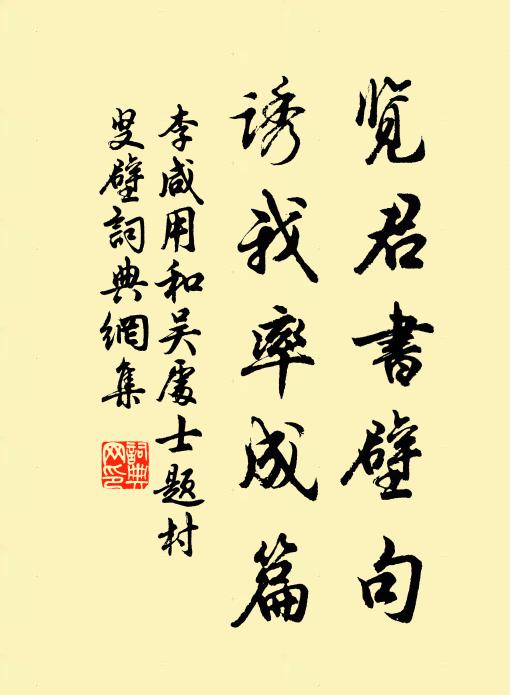 览君书壁句
诱我率成篇
李咸用和吴處士题村
叟壁詞典網集
詞典
网印